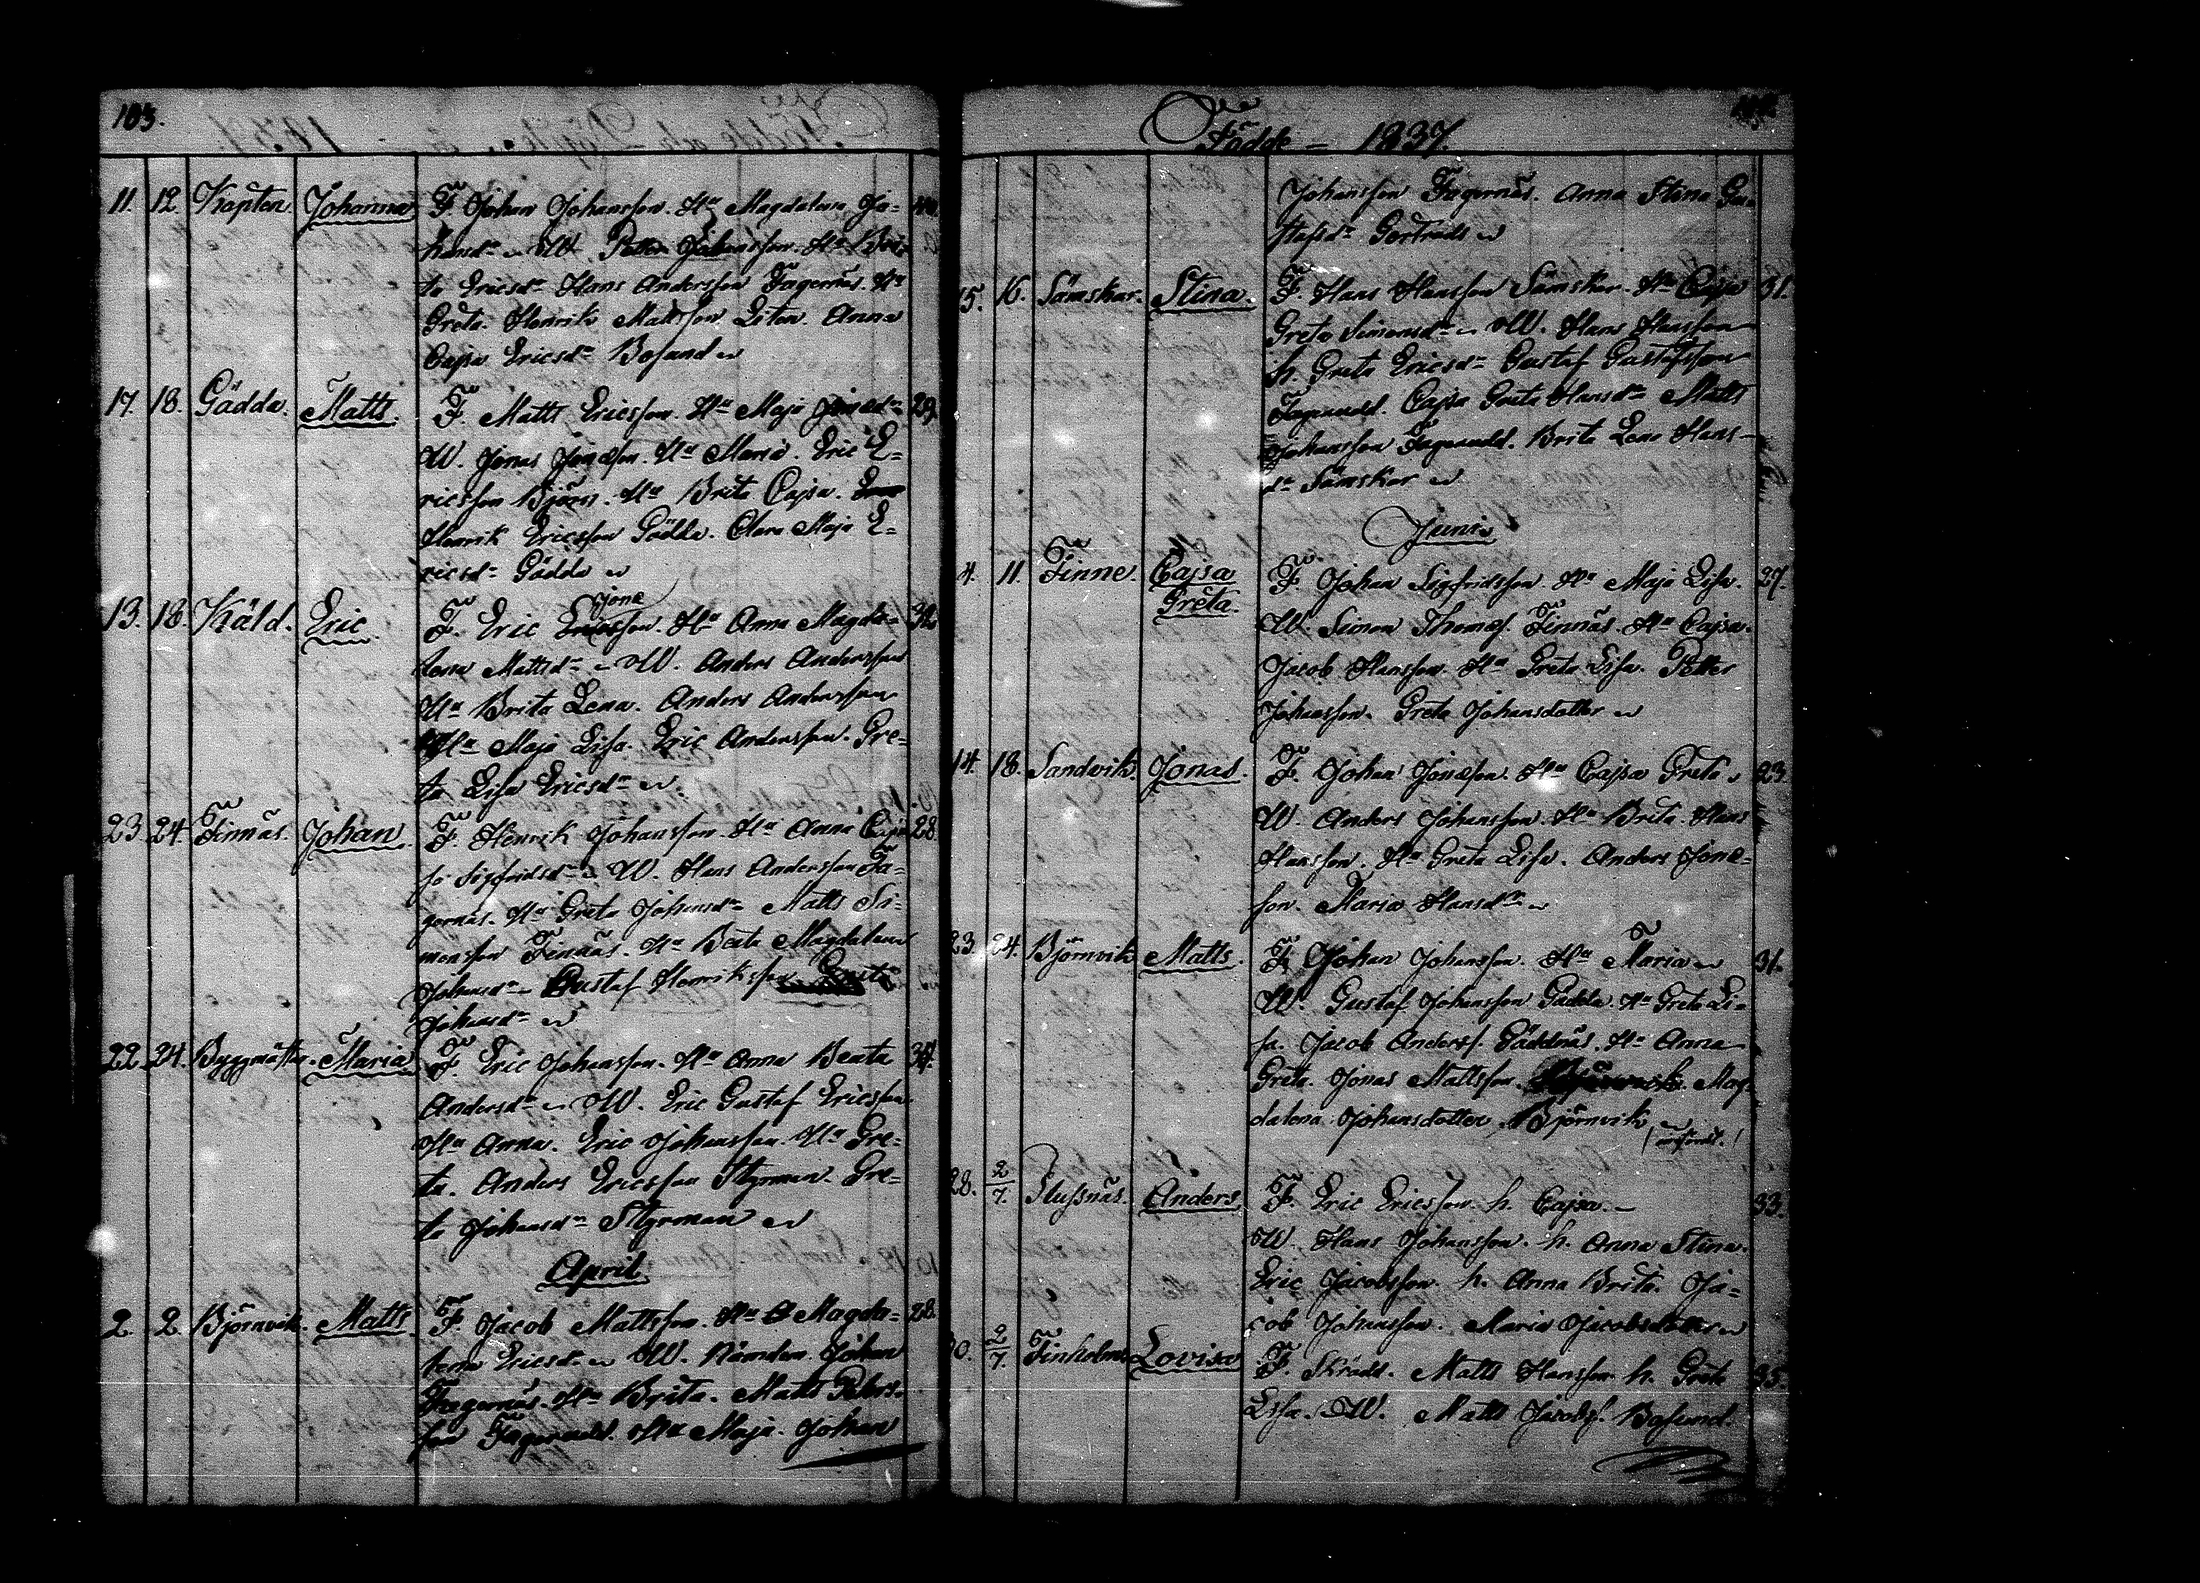 103.
11. 12. Kapten. Johanna F. Johan Johansson. Hu Magdalena Jo=
hansdr W. Petter Johansson. Hu Bri=
ta Ericsdr Hans Andersson Fagernäs. Hu
Greta. Henrik Mattsson Liten. Anna
Cajsa Ericsdr Bosund
17. 18. Gädda. Matts. F. Matts Ericsson. Hu Maja Jonasdr 29.
W. Jonas Jonasson. Hu Maria. Eric E=
ricsson Björn. Hu Brita Cajsa.
Henrik Ericsson Gädda. Clara Maja E=
ricsdr Gädda
13. 18. Käld. Eric. F. Eric Jonasson. Hu Anna Magda= 32.
lena Mattsdr W. Anders Andersson
Hu Brita Lena. Anders Andersson
Hu Maja Lisa. Eric Andersson. Gre=
ta Lisa Ericsdr
23. 24. Finnäs. Johan. F. Henrik Johansson. Hu Anna Caj 28.
sa Sigfridsdr W. Hans Andersson Fa=
gernäs. Hu Greta Johansdr Matts Si=
monsson Finnäs. Hu Beata Magdalena
Johansdr Gustaf Henriksson
Johansdr
22. 24. Byggmäster. Maria F. Eric Johansson. Hu Anna Beata 34.
Andersdr W. Eric Gustaf Ericsson
Hu Anna. Eric Johansson. Hu Gre=
ta. Anders Ericsson Styrman. Gre=
ta Johansdr Styrman
April
2. 2. Björnvik. Matts F. Jacob Mattsson. Hu Magda= 28.
lena Ericsdr W. Nämdem. Johan
Fagernäs. Hu Brita. Matts Peters=
son Fagerudd. Hu Maja. Johan
Födde - 1837.
Johansson Fagernäs. Anna Stina Gu=
stafsdr Gertruds
15. 16. Sämskar. Stina. F. Hans Hansson Sämskar. Hu Cajsa 31.
Greta Simonsdr W. Hans Hansson
h. Greta Ericsdr Gustaf Gustafsson
Fagerudd. Cajsa Greta Hansdr Matts
Johansson Fagerudd. Brita Lena Hans=
dr Sämskar
Juni
4. 11. Finne. Cajsa F. Johan Sigfridsson. Hu Maja Lisa. 27.
Greta.
W. Simon Thomæs. Finnäs. Hu Cajsa.
Jacob Hansson. Hu Greta Lisa. Petter
Johansson. Greta Johansdotter
14. 18. Sandvik. Jonas. F. Johan Jonasson. Hu Cajsa Greta 23.
W. Anders Johansson. Hu Brita. Hans
Hansson. Hu Greta Lisa. Anders Jonas=
son. Maria Hansdr
23. 24. Björnvik Matts. F. Johan Johansson. Hu Maria 31.
W. Gustaf Johansson Gädda. Hu Greta Li=
sa. Jacob Anderss. Gäddnäs. Hu Anna
Greta. Jonas Mattsson. Mag=
dalena Johansdotter Björnvik
28. 2/7. Slussnäs. Anders. F. Eric Ericsson. h. Cajsa. 33.
W. Hans Johansson. h. Anna Stina.
Eric Jacobsson. h. Anna Brita. Ja=
cob Johansson. Maria Jacobsdotter
30. 2/7. Finholm Lovisa F. Skrädd. Matts Hansson h. Greta 35.
Lisa. W. Matts Jacobs. Bosund.